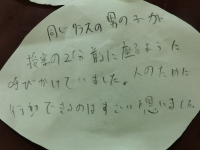 同じクラスの男の子が
授業の2分前に座るように
呼びかけていました。人のために
行動できるのはすごいと思いました